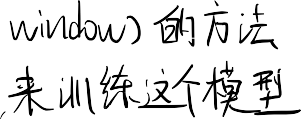 window)的方法
来训练这个模型